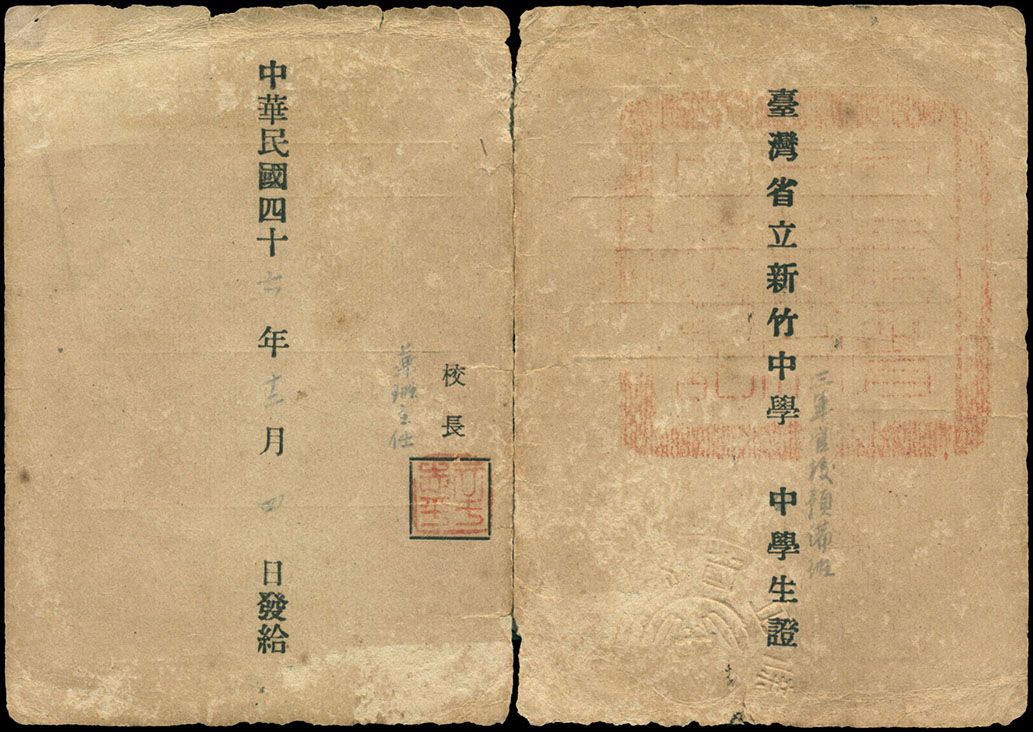 臺灣省立新竹中學　中學生證
三年官校預備班
校長
兼班主任
中華民國四十六年十二月四日發給